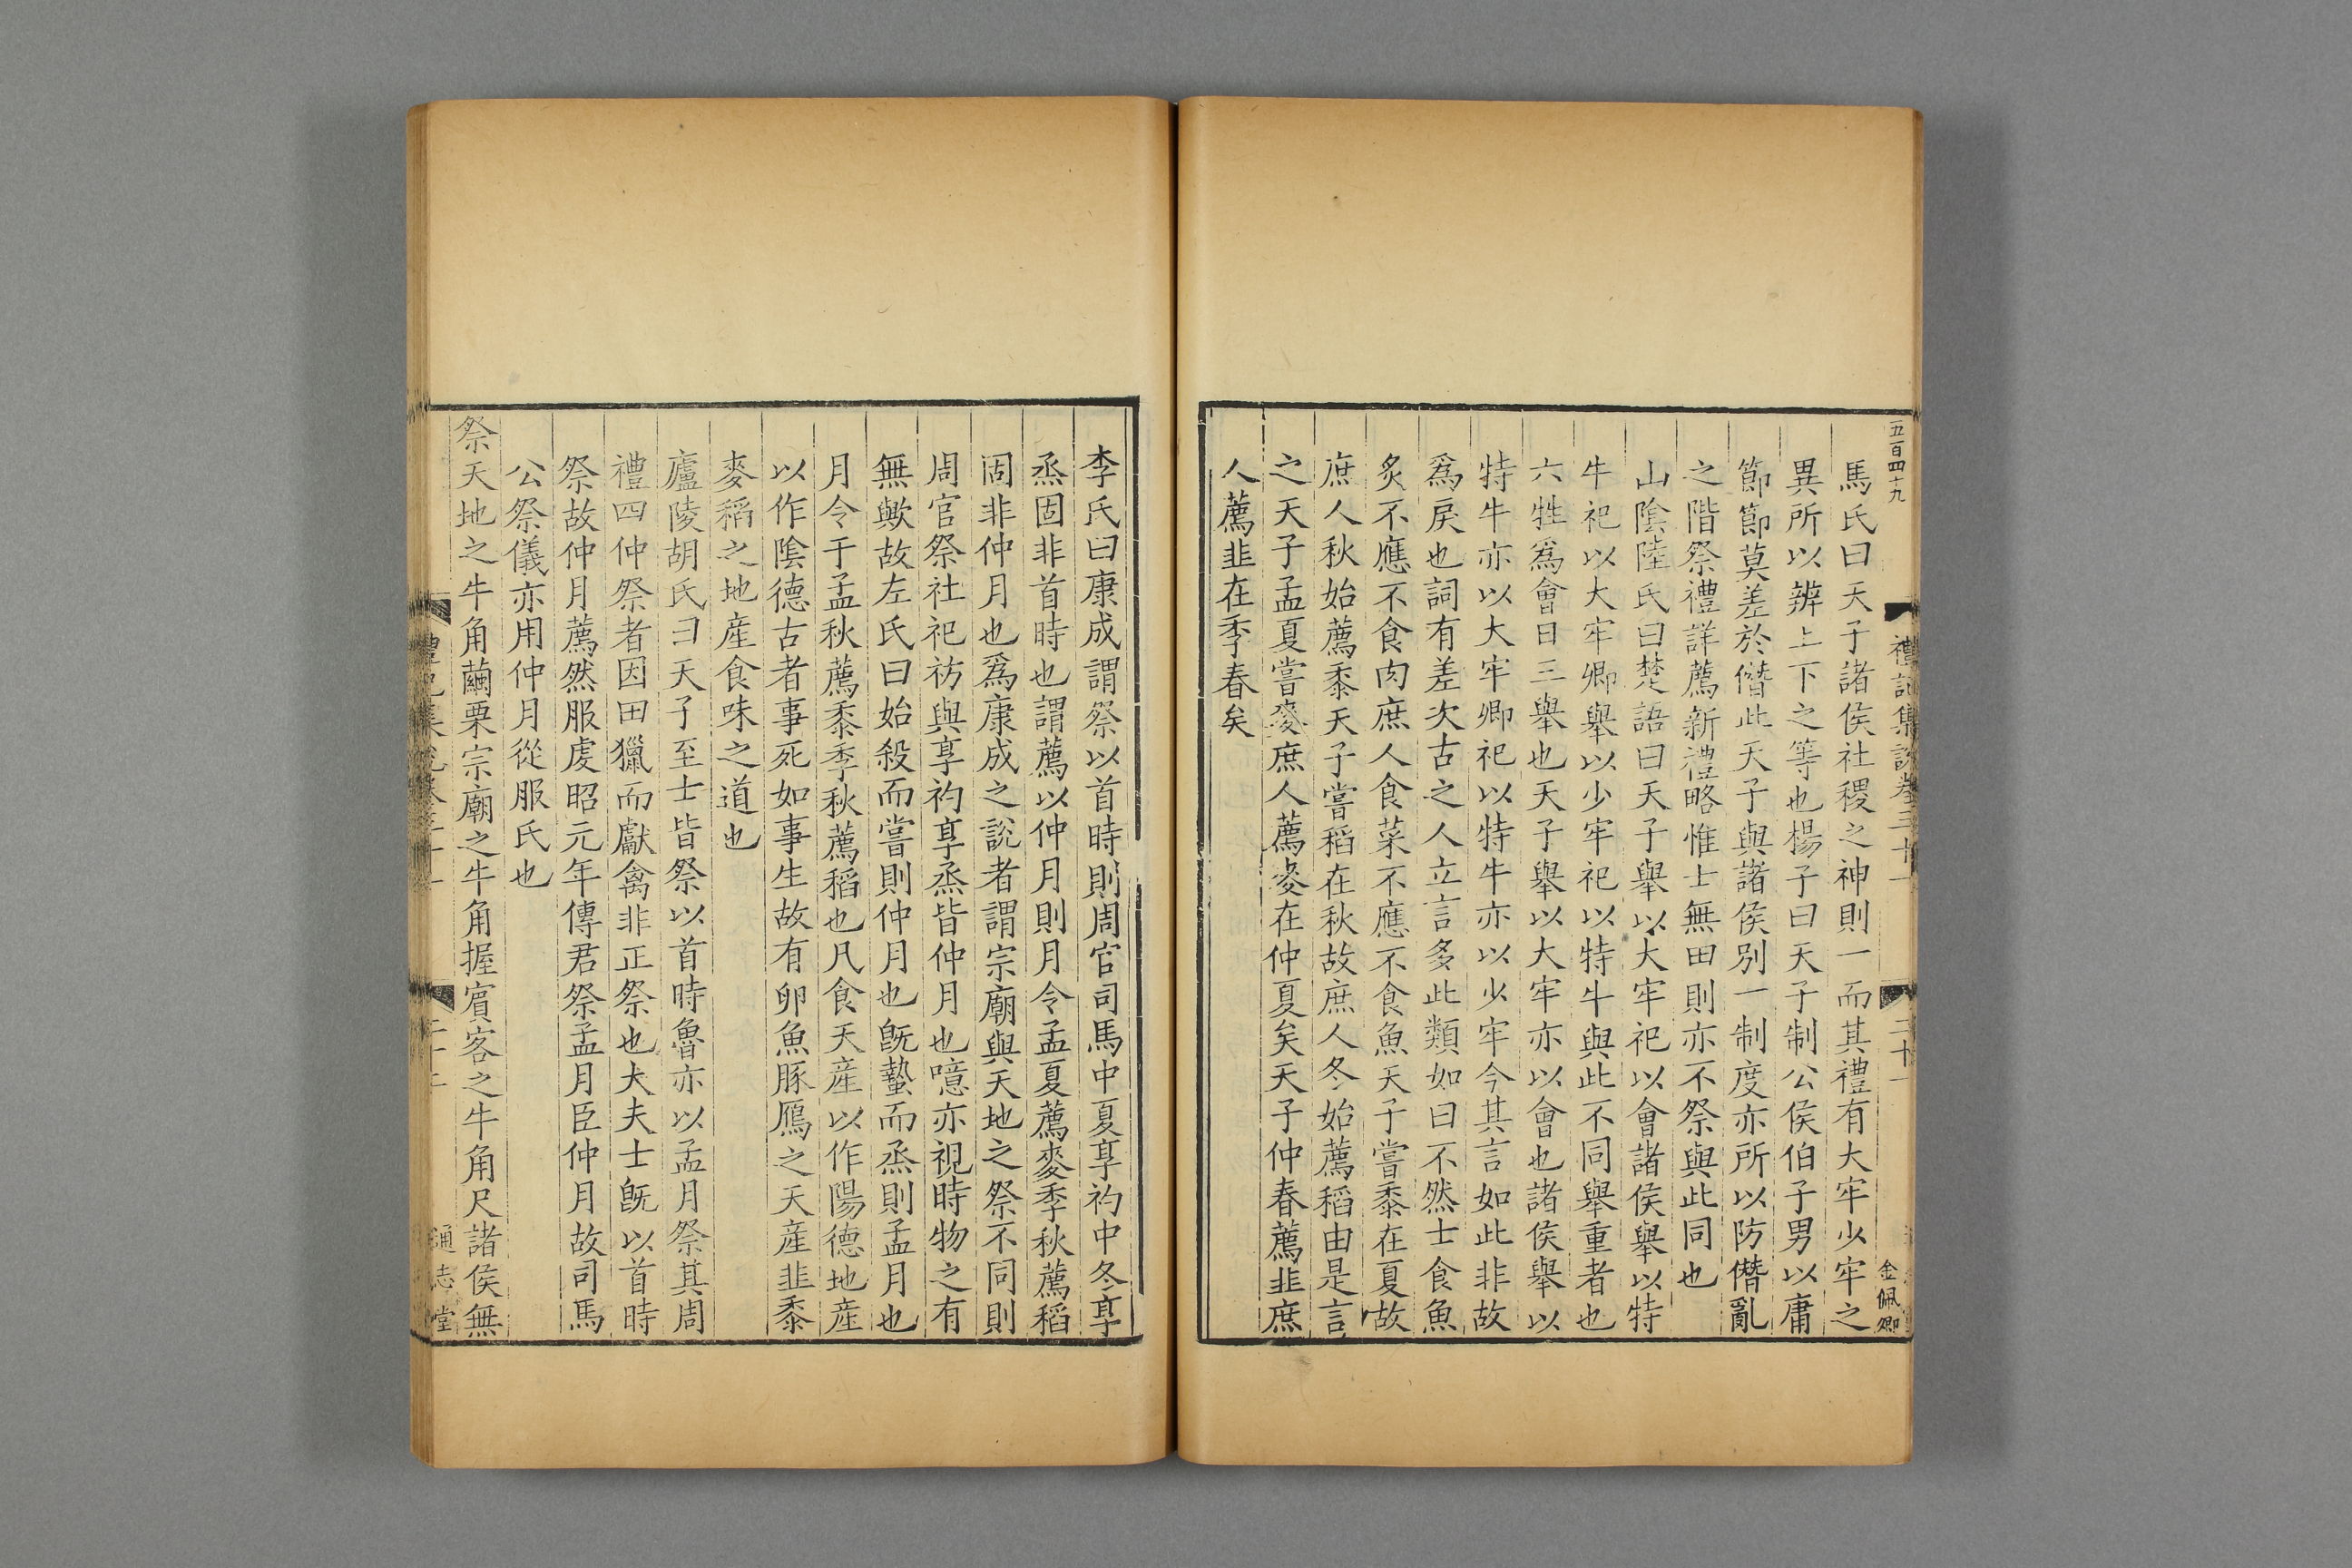 五百四十九
禮記集說卷三十一
三十一
金佩卿
馬氏曰天子諸侯社稷之神則一而其禮有大牢少牢之
異所以辨上下之等也楊子曰天子制公侯伯子男以庸
節節莫差於僭此天子與諸侯別一制度亦所以防僭亂
之階祭禮詳薦新禮略惟士無田則亦不祭與此同也
山陰陸氏曰楚語曰天子舉以大牢祀以會諸侯舉以特
牛祀以大牢卿舉以少牢祀以特牛與此不同舉重者也
六牲爲會日三舉也天子舉以大牢亦以會也諸侯舉以
特牛亦以大牢卿祀以特牛亦以少牢今其言如此非故
爲戾也詞有差次古之人立言多此類如曰不然士食魚
炙不應不食肉庶人食菜不應不食魚天子嘗黍在夏故
庶人秋始薦黍天子嘗稻在秋故庶人冬始薦稻由是言
之天子孟夏嘗麥庶人薦麥在仲夏矣天子仲春薦韭庶
人薦韭在季春矣
李氏曰康成謂祭以首時則周官司馬中夏享礿中冬享
烝固非首時也謂薦以仲月則月令孟夏薦麥季秋薦稻
固非仲月也爲康成之說者謂宗廟與天地之祭不同則
周官祭社祀祊與享礿享烝皆仲月也噫亦視時物之有
無歟故左氏曰始殺而嘗則仲月也旣蟄而烝則孟月也
月令于孟秋薦黍季秋薦稻也凡食天產以作陽德地產
以作陰德古者事死如事生故有卵魚豚鴈之天產韭黍
麥稻之地產食味之道也
廬陵胡氏曰天子至士皆祭以首時魯亦以孟月祭其周
禮四仲祭者因田獵而獻禽非正祭也大夫士旣以首時
祭故仲月薦然服虔昭元年傳君祭孟月臣仲月故司馬
公祭儀亦用仲月從服氏也
祭天地之牛角繭栗宗廟之牛角握賓客之牛角尺諸侯無
通志堂